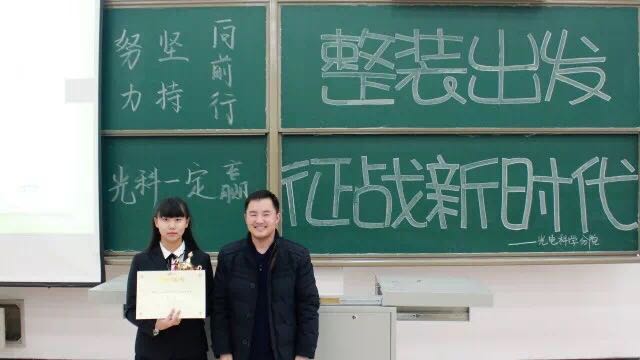 努力
坚持
向前行
光科一定赢
整装出发
征战新时代
——光电科学分院